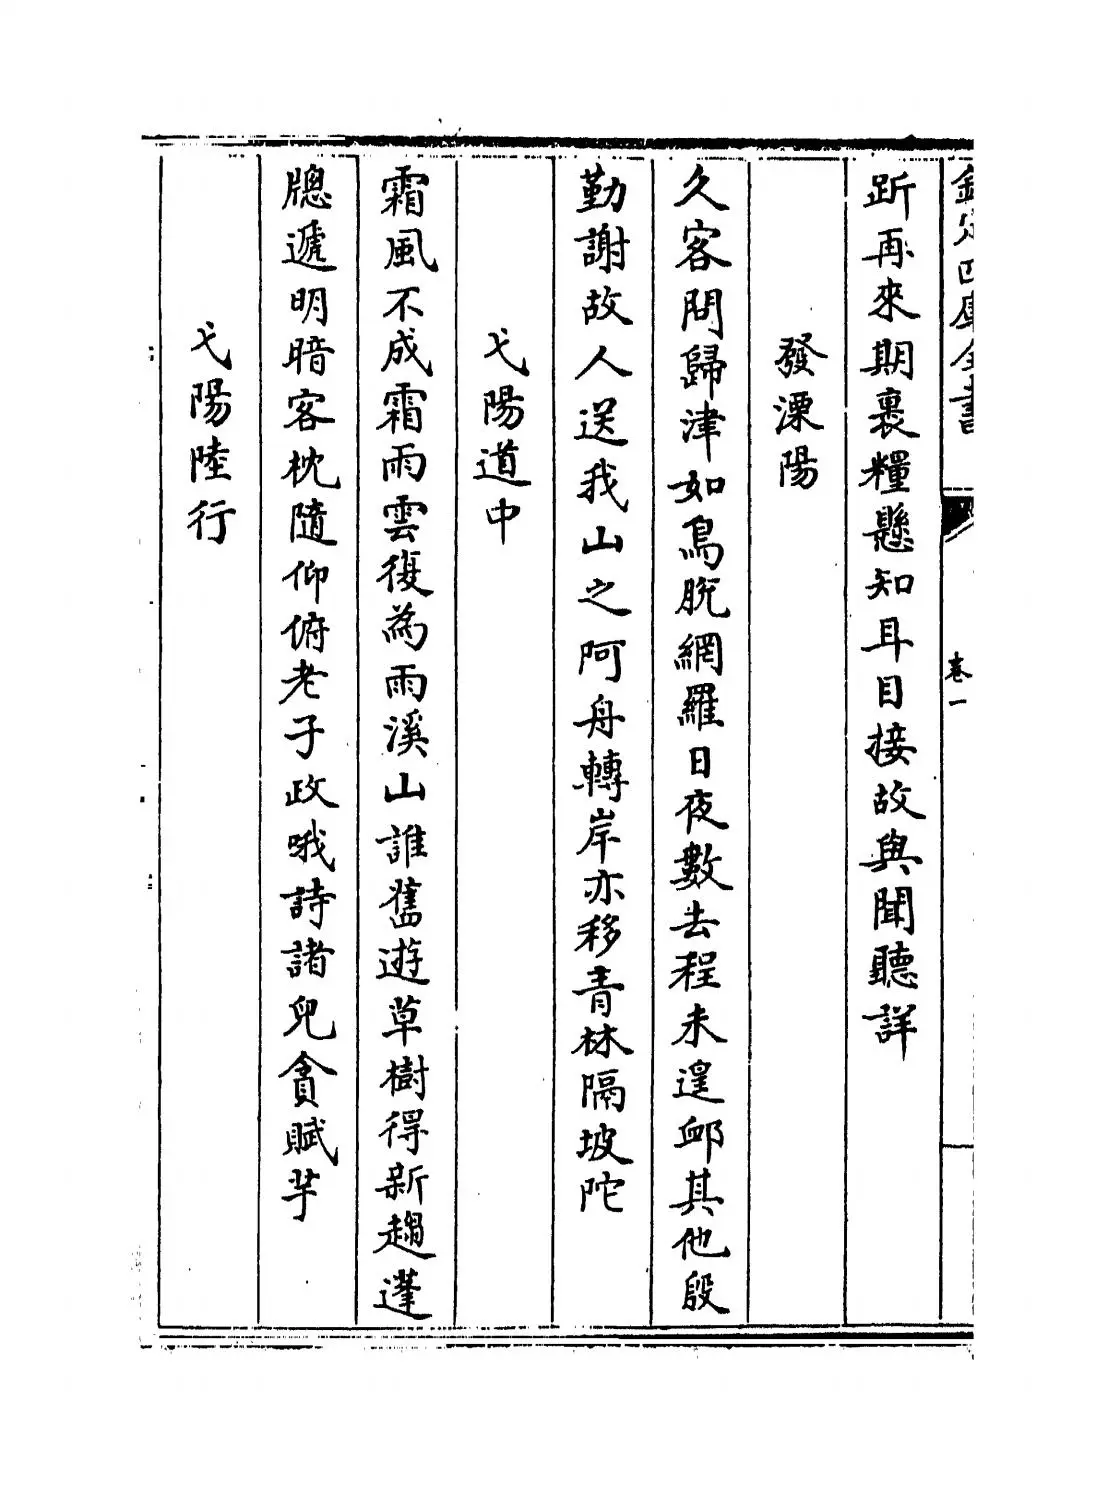 欽定四庫全書
卷一
斦再來期裹糧懸知耳目接故與聞聽詳
發溧陽
久客問歸津如鳥脫網羅日夜數去程未遑邮其他殷
勤謝故人送我山之阿舟轉岸亦移青林隔坡陀
弋陽道中
霜風不成霜雨雲復為雨溪山誰舊遊草樹得新趨蓬
牕遞明暗客枕隨仰俯老子政哦詩諸兒貪賦芧
弋陽陸行